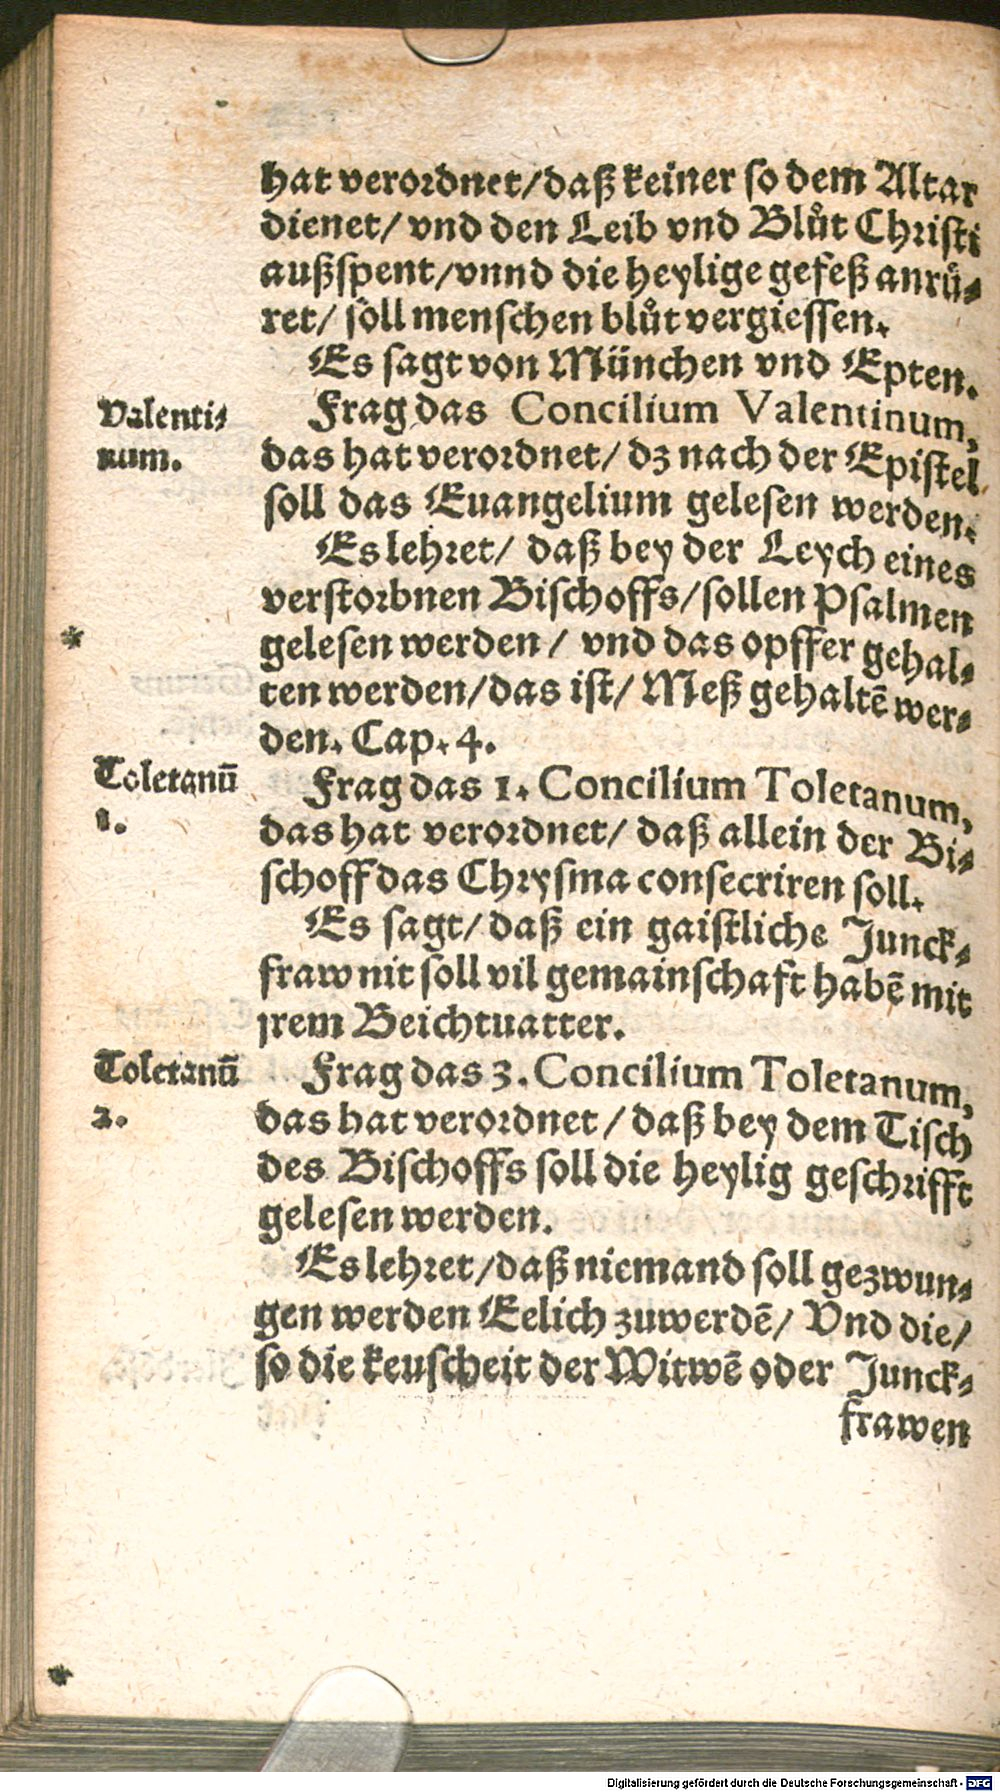 hat verordnet/daß keiner so dem Altar
dienet/ vnd den Leib vnd Blůt Christi
außspent/vnnd die heylige gefeß anrů⸗
ret/ söll menschen blůt vergiessen.
Es sagt von München vnd Epten.
Valenti⸗
num.
Frag das Concilium Valentinum,
das hat verordnet/ dz nach der Epistel
soll das Euangelium gelesen werden.
Es lehret/ daß bey der Leych eines
verstorbnen Bischoffs/sollen Psalmen
*
gelesen werden/ vnd das opffer gehal⸗
ten werden/das ist/ Meß gehaltē wer⸗
den. Cap. 4.
Toletanū
1.
Frag das 1. Concilium Toletanum,
das hat verordnet/ daß allein der Bi⸗
schoff das Chrysma consecriren soll.
Es sagt/ daß ein gaistliche Junck⸗
fraw nit soll vil gemainschaft habē mit
jrem Beichtuatter.
Toletanū
2.
Frag das 3. Concilium Toletanum,
das hat verordnet/ daß bey dem Tisch
des Bischoffs soll die heylig geschrifft
gelesen werden.
Es lehret/daß niemand soll gezwun⸗
gen werden Eelich zuwerdē/ Vnd die/
so die keuscheit der Witwē oder Junck⸗
frawen
*
Digitalisierung gefördert durch die Deutsche Forschungsgemeinschaft - DFG